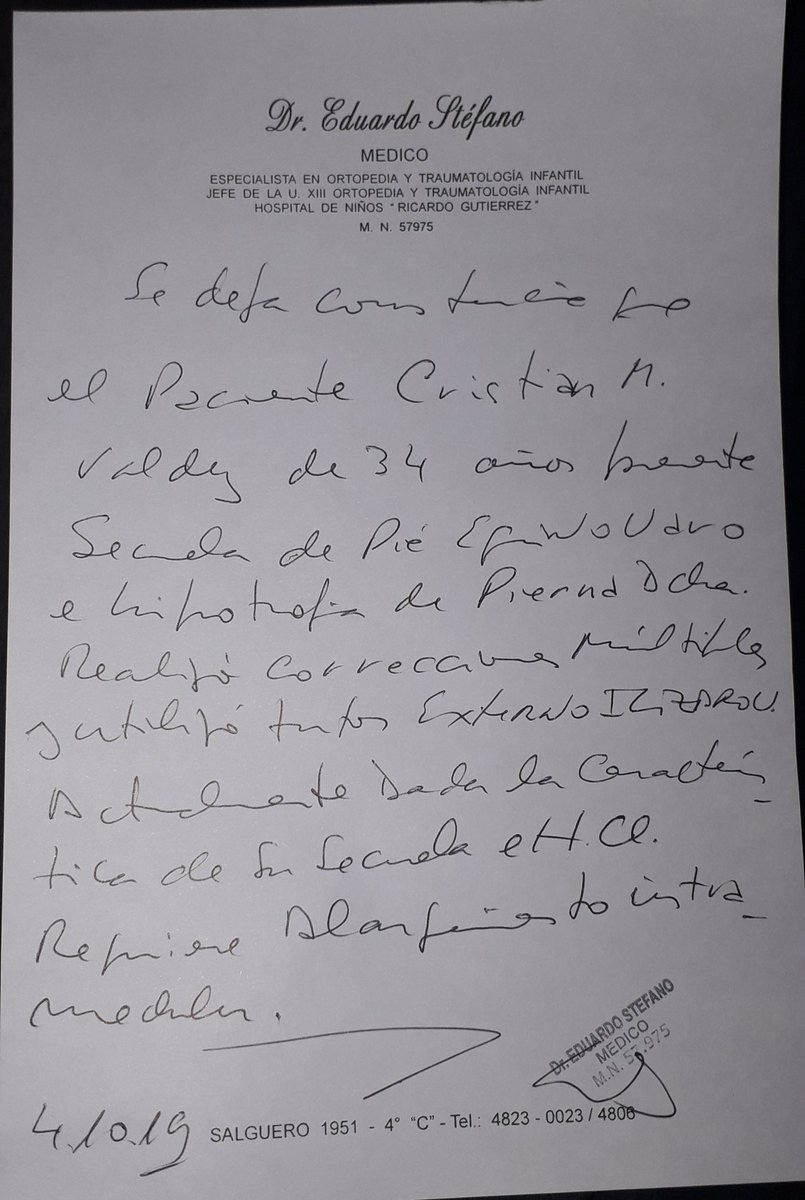 Dr. Eduardo Stéfano
MEDICO
ESPECIALISTA EN ORTOPEDIA Y TRAUMATOLOGÍA INFANTIL
JEFE DE LA U. XIII ORTOPEDIA Y TRAUMATOLOGÍA INFANTIL
HOSPITAL DE NIÑOS "RICARDO GUTIERREZ"
M. N. 57975
Se deja constancia que
el Paciente Cristian M.
Valdez de 34 años presente
Secuela de Pié Equino Varo
e hipotrofia de Pierna Dcha.
Realizó correcciones Múltiples
y utilizó tutor Externo ILIZAROV.
Actualmente Dada la Caracterís_
tica de su Secuela e H.Cl.
Requiere Alargamiento intra_
medular.
Dr. EDUARDO STEFANO
MEDICO
M.N. 57.975
4.10.19
SALGUERO 1951 - 4° "C" - Tel.: 4823 - 0023 / 4806